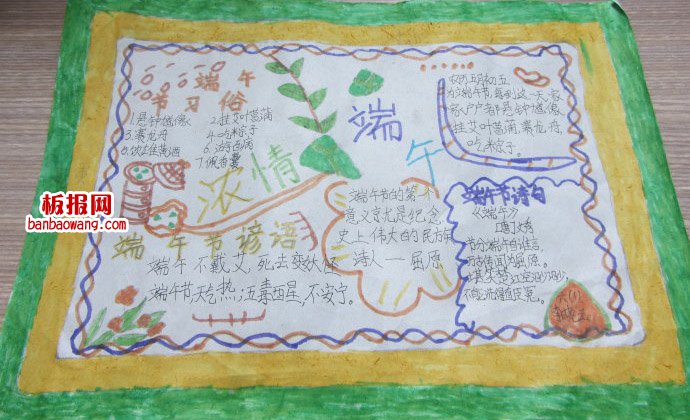 端午
节习俗
1.悬钟馗像
2.挂艾叶菖蒲
3.赛龙舟
4.吃粽子
5.饮雄黄酒
6.游百病
7.佩香囊
浓情
端午
农历五月初五
为端午节,每到这一天,家
家户户都悬钟馗像,
挂艾叶菖蒲,赛龙舟,
吃粽子。
端午节谚语
端午不戴艾,死去变妖怪
端午节,天气热;五毒醒,不安宁。
端午节的第一个
意义就是纪念
史上伟大的民
诗人一屈原
端午节诗句
《端午》
唐 文秀
节分端午自谁言,
万古传闻为屈原。
堪笑楚江空渺渺,
不能洗得直臣冤。
六(1)
板报网
banbaowang.com